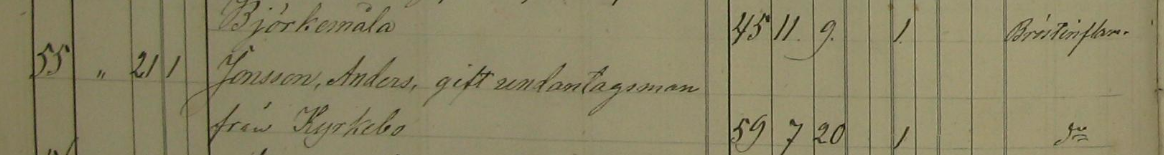 Björkemåla 45 11. 9. 1. Bröstinflam.
55 „ 21 1 Jonsson, Anders, gift undantagsman
från Kyrkebo 59 7 20 1 do